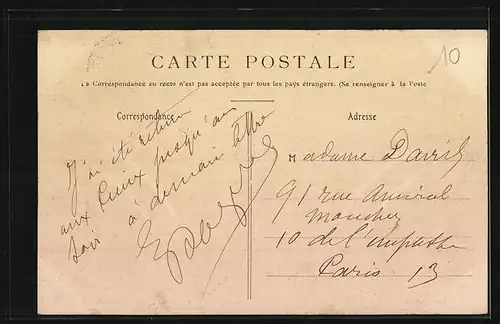 10
CARTE POSTALE
La Correspondance au recto n'est pas acceptée par tous les pays étrangers. (Se renseigner à la Poste
Correspondance
Adresse
J'ai été retenu
aux jusqu'au
soir à demain lettre
Madame
91 rue Amiral
Mouchez
10 de l'impasse
Paris 13